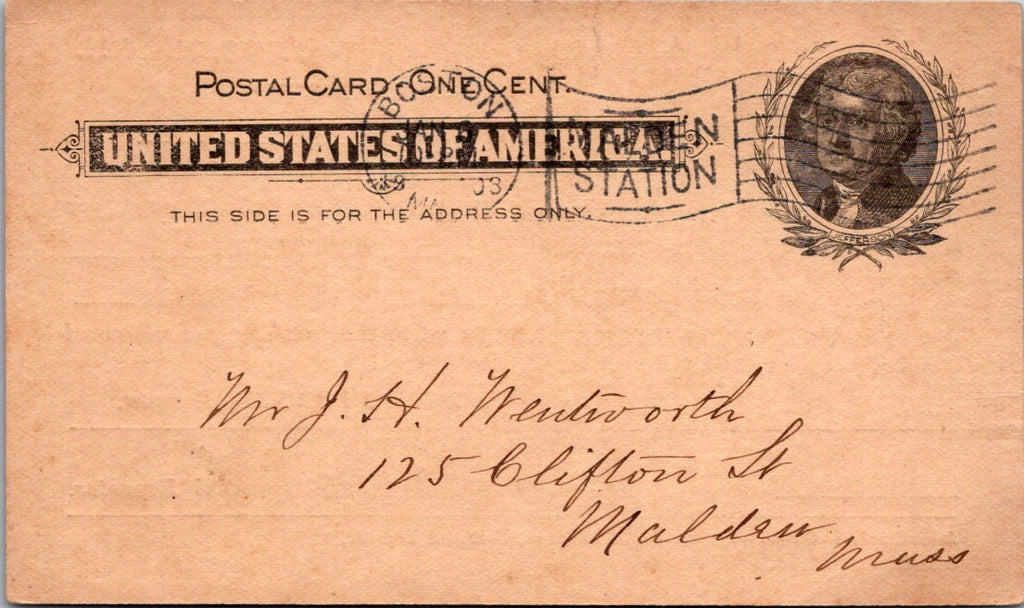 POSTAL CARD ONE CENT.
UNITED STATES OF AMERICA
THIS SIDE IS FOR THE ADDRESS ONLY.
BOSTON
STATION
JEFFERSON
Mr J. H. Wentworth
125 Clifton St
Malden
Mass